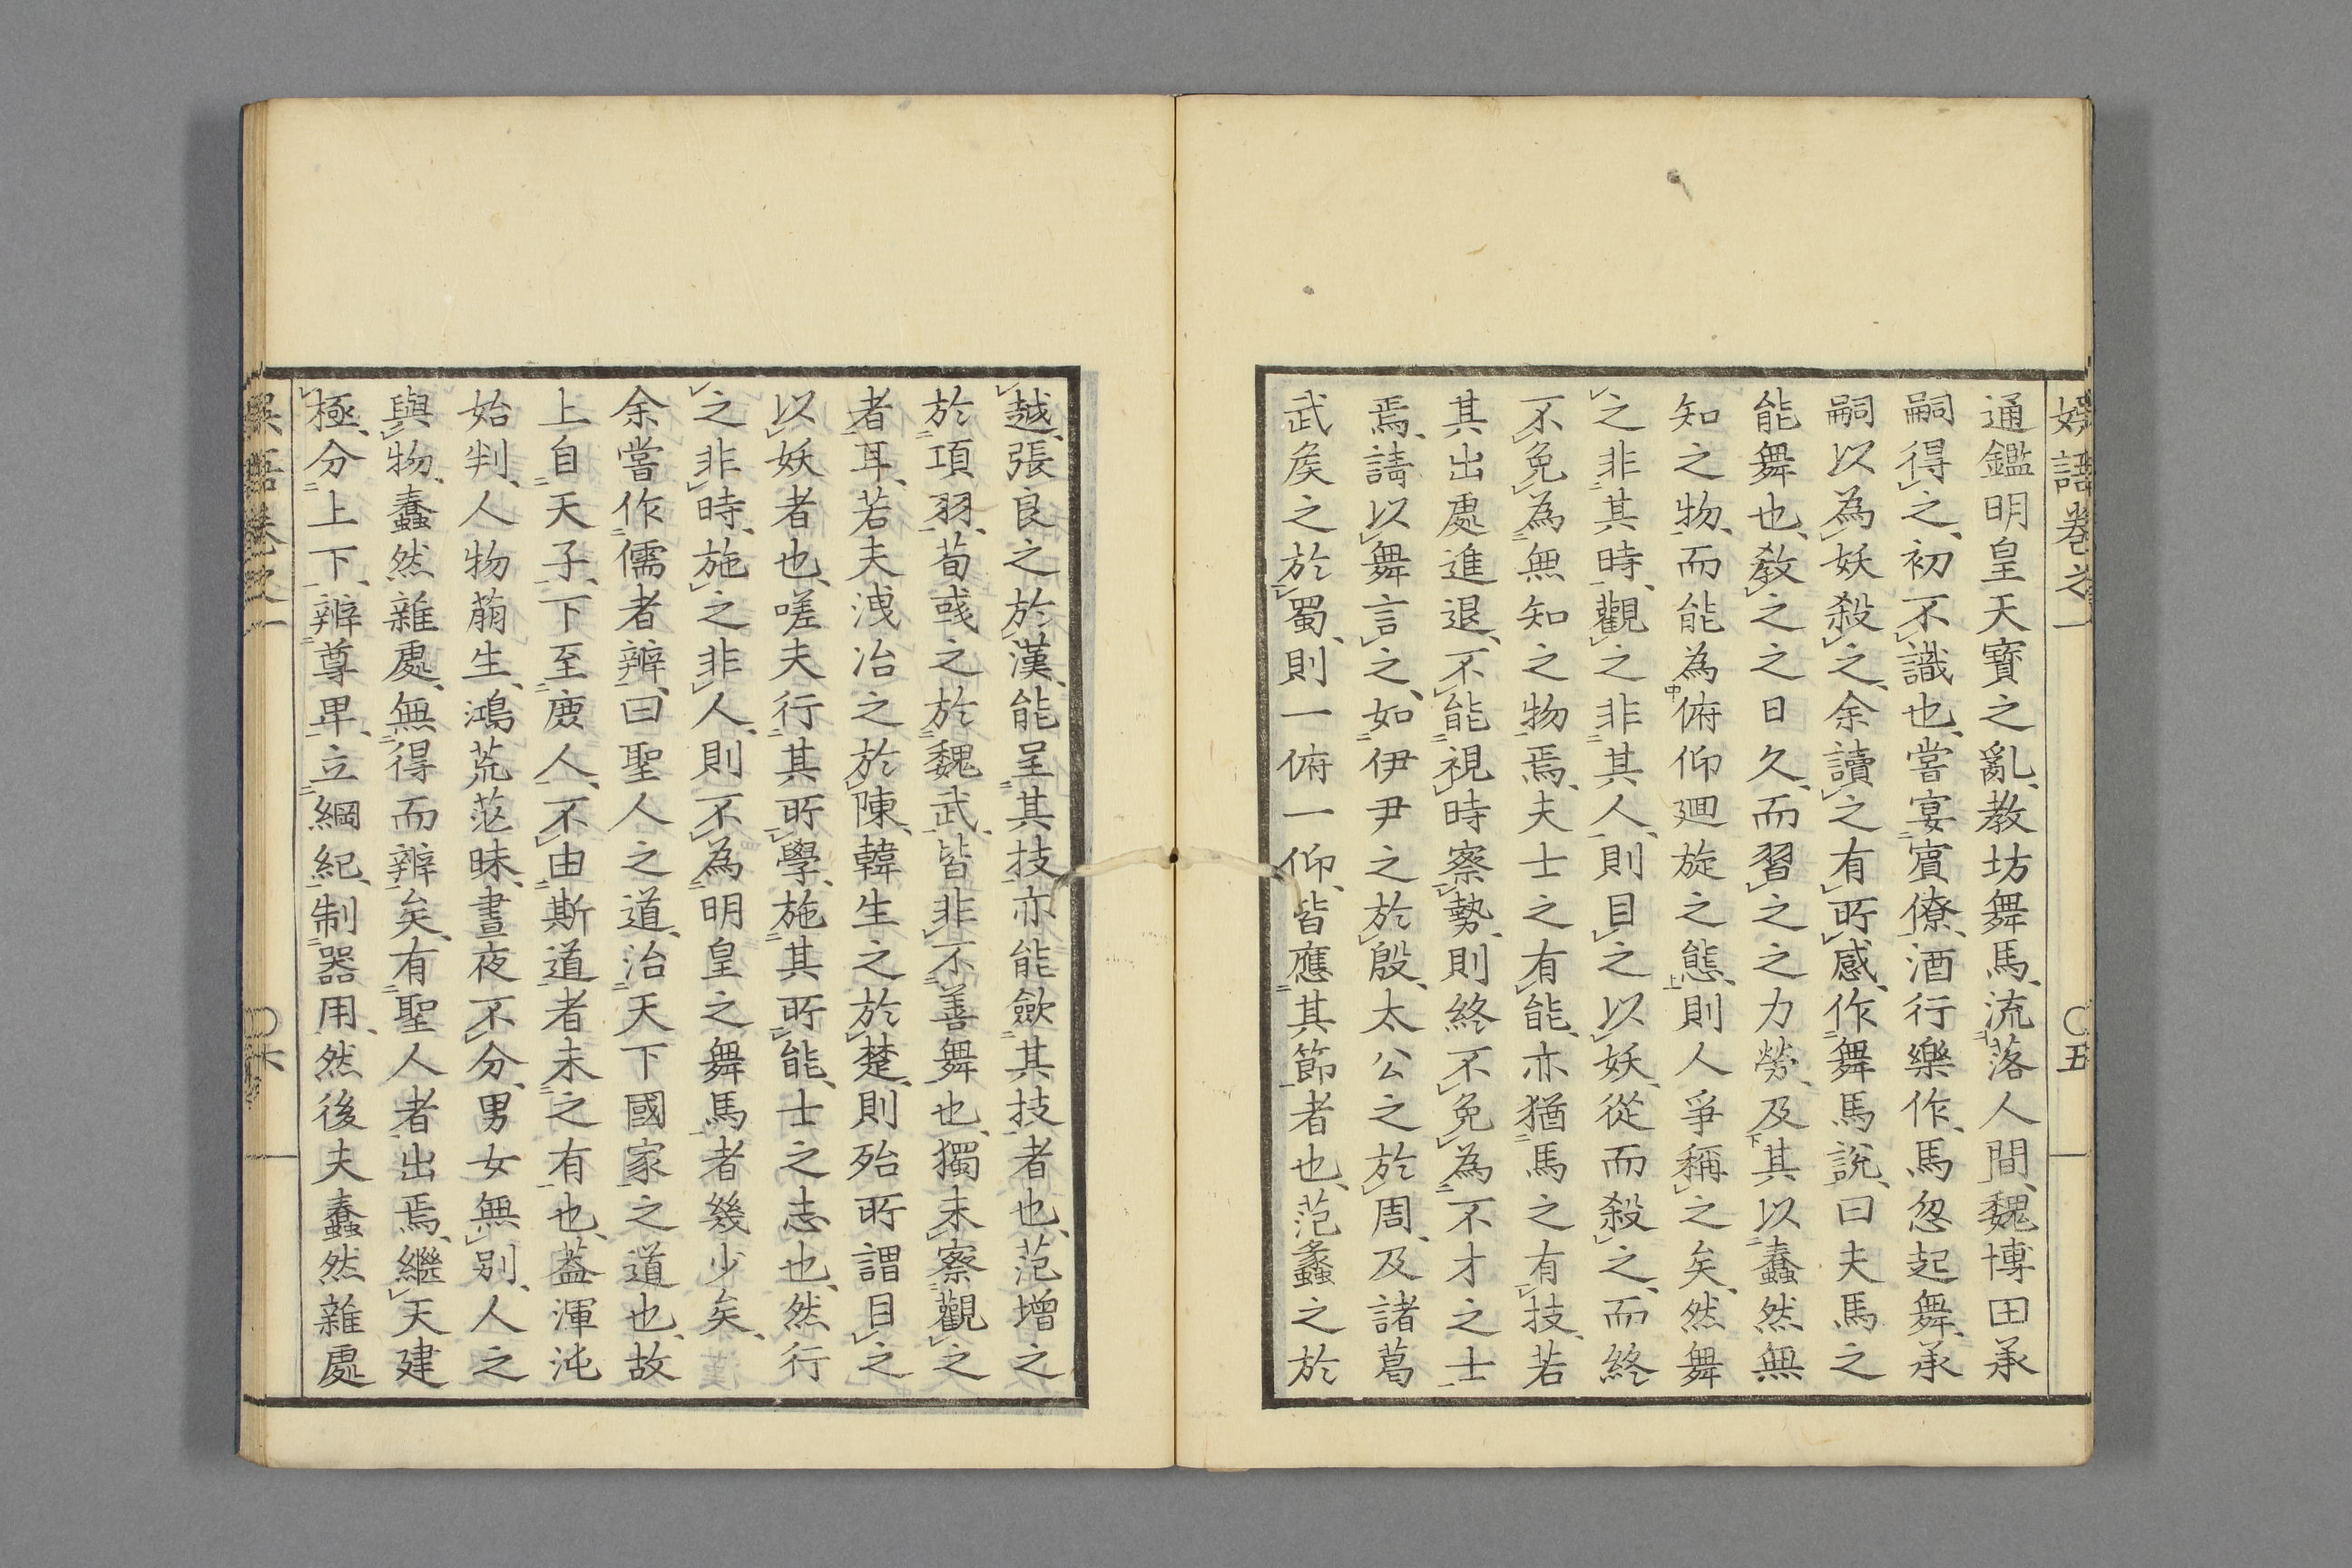 娯語卷之一 〇五
通鑑明皇天寶之亂、教坊舞馬、流落人間、魏博田承
嗣得之、初不識也、嘗宴賓僚、酒行樂作、馬忽起舞、承
嗣以為妖殺之、余讀之有所感、作舞馬說、曰夫馬之
能舞也、教之之日久、而習之之力勞、及其以蠢然無
知之物、而能為俯仰廻旋之態、則人爭稱之矣、然舞
之非其時、觀之非其人、則目之以妖、從而殺之、而終
不免為無知之物焉、夫士之有能、亦猶馬之有技、若
其出處進退、不能視時察勢、則終不免為不才之士
焉、請以舞言之、如伊尹之於殷、太公之於周、及諸葛
武矦之於蜀、則一俯一仰、皆應其節者也、范蠡之於
越、張良之於漢、能呈其技、亦能歛其技者也、范增之
於項羽、荀彧之於魏武、皆非不善舞也、獨未察觀之
者耳、若夫洩冶之於陳、韓生之於楚、則殆所謂目之
以妖者也、嗟夫行其所學、施其所能、士之志也、然行
之非時、施之非人、則不為明皇之舞馬者幾少矣、
余嘗作儒者辨、曰聖人之道、治天下國家之道也、故
上自天子、下至庻人、不由斯道者未之有也、葢渾沌
始判、人物萠生、鴻荒茫昧、晝夜不分、男女無別、人之
與物、蠢然雜處、無得而辨矣、有聖人者出焉、繼天建
極、分上下、辨尊卑、立綱紀、制器用、然後夫蠢然雜處
娯語卷之一 〇六